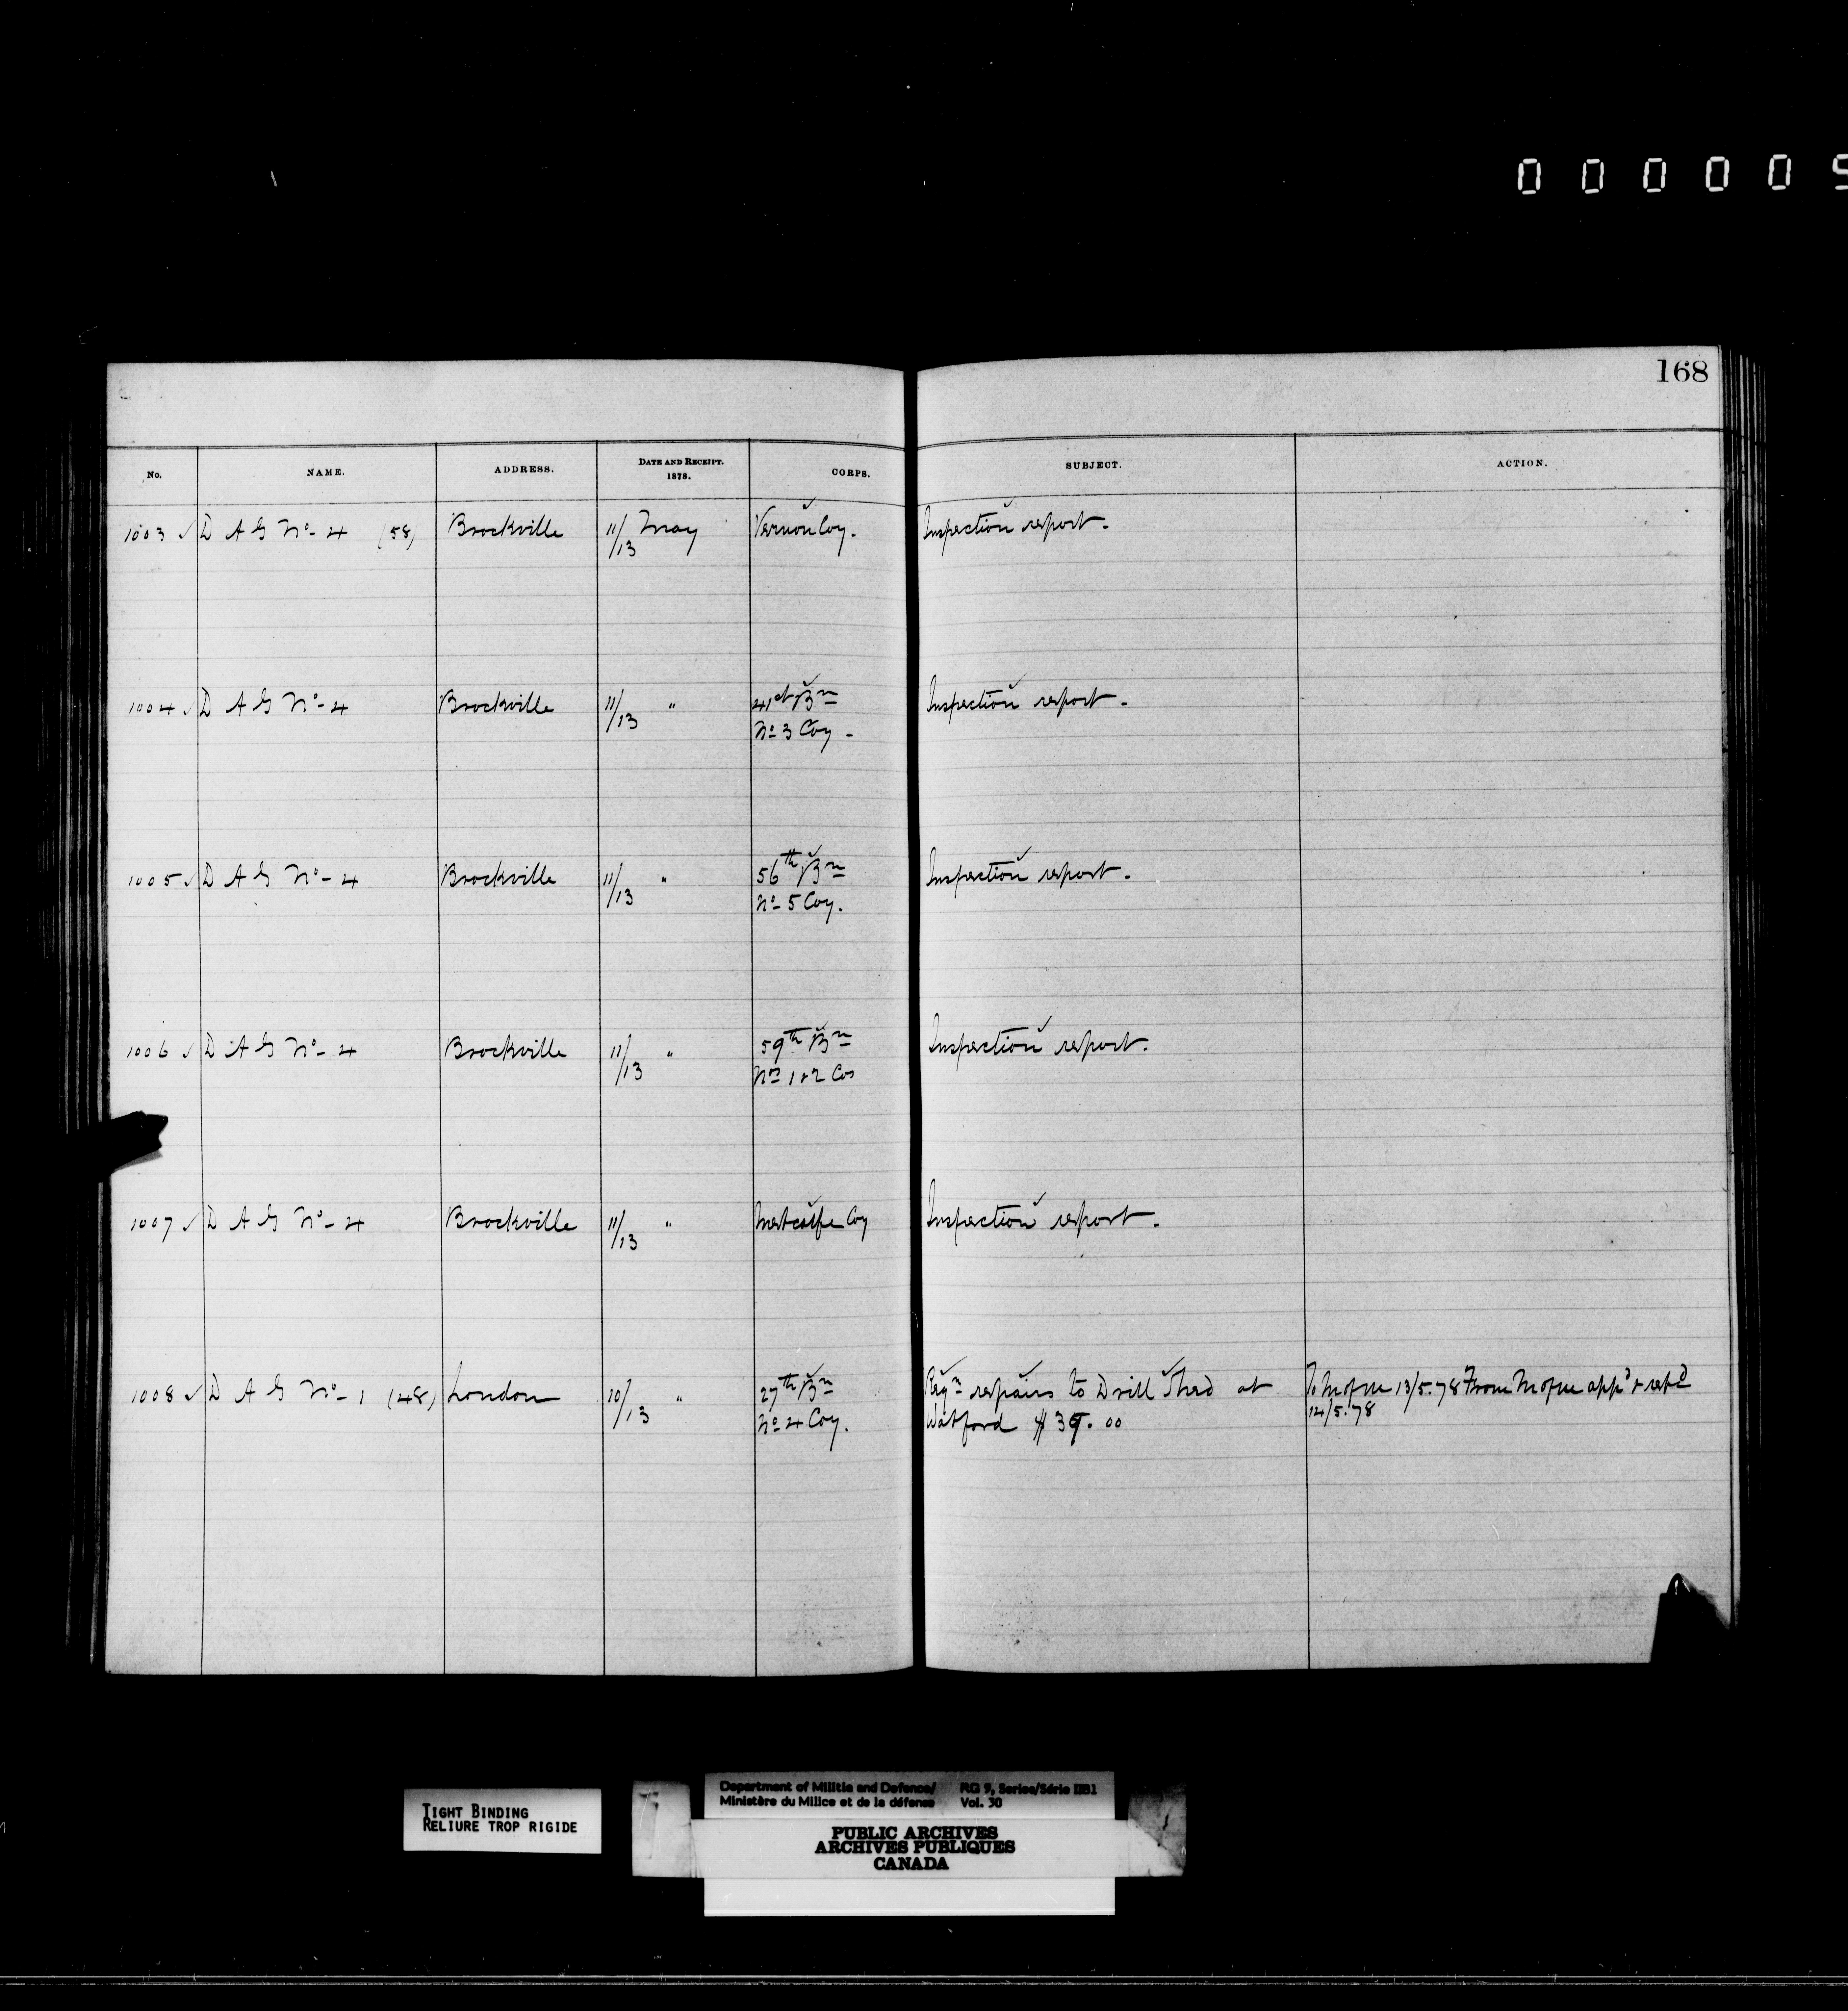 0 0 0 0 0 5
168
No. NAME. ADDRESS. DATE AND RECEIPT. 1878. CORPS. SUBJECT. ACTION.
1003 ✓ D A G No- 4 (58) Brockville 11/13 May Vernon Coy. Inspection report.
1004 ✓ D A G No- 4 Brockville 11/13 " 41st Bn Inspection report.
No 3 Coy -
1005 ✓ D A G No- 4 Brockville 11/13 " 56th Bn Inspection report.
No- 5 Coy.
1006 ✓ D A G No- 4 Brockville 11/13 " 59th Bn Inspection report.
Nos 1 & 2 Cos
1007 ✓ D A G No- 4 Brockville 11/13 " Metcalfe Coy Inspection report.
1008 ✓ D A G No- 1 (48) London 10/13 " 27th Bn Reqn repairs to Drill Shed at To M of M 13/5.78 From M of M appd & retd
No 4 Coy. Watford $ 39.00 14/5.78
TIGHT BINDING
RELIURE TROP RIGIDE
Department of Militia and Defence/ RG 9, Series/Série IIB1
Ministère du Milice et de la défense Vol. 30
PUBLIC ARCHIVES
ARCHIVES PUBLIQUES
CANADA